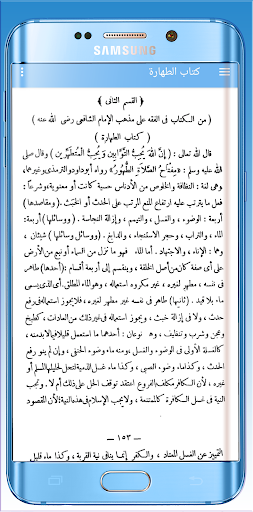 SAMSUNG
كتاب الطهارة
﴿ القسم الثانى ﴾
( من الكتاب فى الفقه على مذهب الإمام الشافعى رضى الله عنه )
﴿ كتاب الطهارة ﴾
قال الله تعالى : ( إنَّ اللهَ يُحِبُّ التَّوَّابِينَ وَيُحِبُّ الْمُتَطَهِّرِينَ ) وقال صلى
الله عليه وسلم : «مِفْتَاحُ الصَّلَاةِ الطُّهُورُ» رواه أبوداود والترمذى وغيرهما،
وهى لغة : النظافة والخلوص من الأدناس حسية كانت أو معنوية وشرعاً :
فعل ما يترتب عليه ارتفاع المنع المرتب على الحدث أو الخبث. ( مقاصدها )
أربعة : الوضوء ، والغسل ، والتيمم ، وإزالة النجاسة . ( ووسائلها ) أربعة:
الماء ، والتراب ، وحجر الاستنجاء ، والدابغ . ( ووسائل وسائلها ) شيئان ،
وهما : الإناء ، والاجتهاد . أما الماء فهو ما نزل من السماء أو نبع من الأرض
على أى صفة كان من أصل الخلقة ، وينقسم إلى أربعة أقسام : ( أحدها ) طاهر
فى نفسه مطهر لغيره ، غير مكروه استعماله ، وهو الماء المطلق أى الذى يسمى
ماء بلا قيد . ( ثانيها ) طاهر فى نفسه غير مطهر لغيره ، فلا يجوز استعماله فى رفع
حدث ، ولا فى إزالة خبث ، ويجوز استعماله فى غير ذلك من العادات ، كطبخ
وعجن وشرب وتنظيف ، وهو نوعان : أحدهما ما استعمل قليلا فيما لابد منه ،
كالغسلة الأولى فى الوضوء والغسل ومنه ماء وضوء الحنفى ، وإن لم ينو رفع
الحدث ، وكذا ماء وضوء الصبى ، وكذا ماء غسل الذمية لتحل لحليلها المسلم أو
غيره ، لأن الكافر مكلف بفروع الشريعة
النية فى غسل الكافرة كالممتنعة ، ولا
— ١٥٣ —
التمييز عن الغسل المعتاد ، والكفر إنما ينافى نية القربة ، وكذا ماء قليل